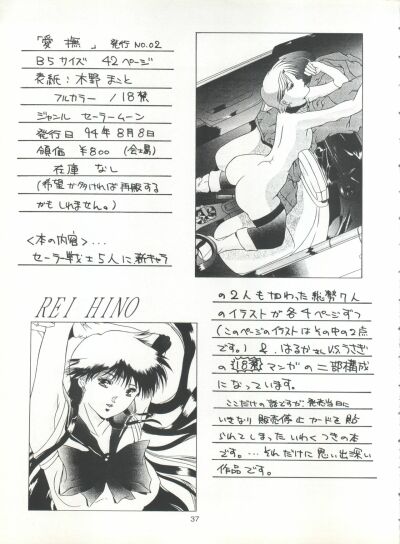 「愛撫」 発行 NO.02
B5サイズ 42ページ
表紙：木野 まこと
フルカラー / 18禁
ジャンル セーラームーン
発行日 94年8月8日
領価 ¥800 (会場)
在庫 なし
(希望が多ければ再販する
かもしれません。)
<本の内容>...
セーラー戦士5人に新キャラ
REI HINO
の2人も加わった総勢7人
のイラストが各4ページずつ
(このページのイラストはその中の2点
です。) & はるかさんVSうさぎ
の18禁マンガの二部構成
になっています。
ここだけの話ですが発売当日に
いきなり販売停止カードを貼
られてしまったいわくつきの本
です。...それだけに思い出深い
作品です。
37